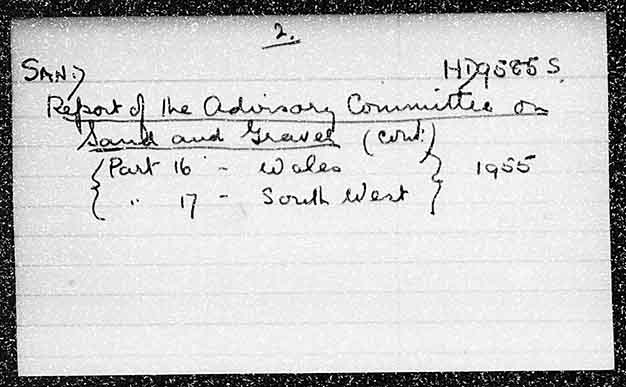 2.
SAN:) HD9585 S.
Report of the Advisory Committee on
Sand and Gravel (cont:)
{Part 16 - Wales } 1955
{ " 17 - South West }